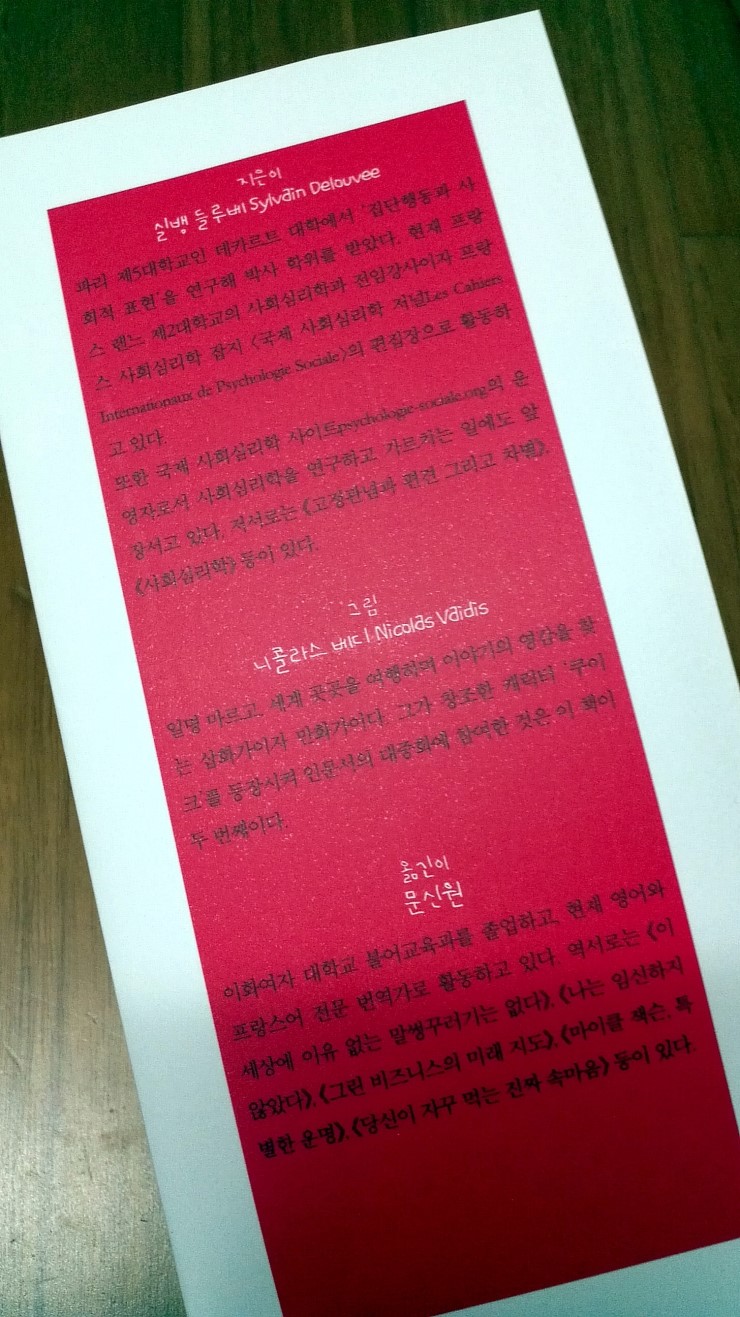 지은이
실뱅 들루베 Sylvain Delouvee
파리 제5대학교인 데카르트 대학에서 '집단행동과 사
회적 표현'을 연구해 박사 학위를 받았다. 현재 프랑
스 렌느 제2대학교의 사회심리학과 전임강사이자 프랑
스 사회심리학 잡지 〈국제 사회심리학 저널Les Cahiers
Internationaux de Psychologie Sociale〉의 편집장으로 활동하
고 있다.
또한 국제 사회심리학 사이트psychologie-sociale.org의 운
영자로서 사회심리학을 연구하고 가르치는 일에도 앞
장서고 있다. 저서로는 《고정관념과 편견 그리고 차별》,
《사회심리학》 등이 있다.
그림
니콜라스 베디 Nicolas Vaidis
일명 마르고. 세계 곳곳을 여행하며 이야기의 영감을 찾
는 삽화가이자 만화가이다. 그가 창조한 캐릭터 '쿠이
크'를 등장시켜 인문서의 대중화에 참여한 것은 이 책이
두 번째이다.
옮긴이
문신원
이화여자 대학교 불어교육과를 졸업하고, 현재 영어와
프랑스어 전문 번역가로 활동하고 있다. 역서로는 《이
세상에 이유 없는 말썽꾸러기는 없다》, 《나는 임신하지
않았다》, 《그린 비즈니스의 미래 지도》, 《마이클 잭슨, 특
별한 운명》, 《당신이 자꾸 먹는 진짜 속마음》 등이 있다.